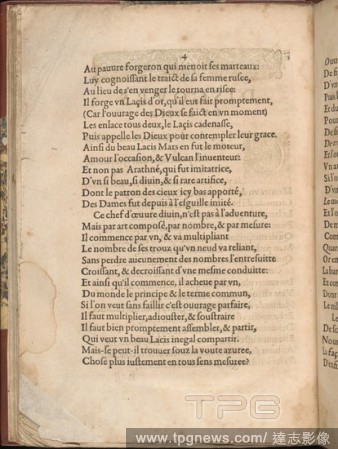 4
Au pauure forgeron qui menoit ses marteaux:
Luy cognoissant le traict de sa femme rusee,
Au lieu de s'en venger le tourna en risee:
Il forge vn Laçis d'or, qu'il eut fait promptement,
(Car l'ouurage des Dieux se faict en vn moment)
Les enlace tous deux, le Laçis cadenasse,
Puis appelle les Dieux pour contempler leur grace.
Ainsi du beau Lacis Mars en fut le moteur,
Amour l'occasion, & Vulcan l'inuenteur:
Et non pas Arathné, qui fut imitatrice,
D'vn si beau, si diuin, & si rare artifice,
Dont le patron des cieux icy bas apporté,
Des Dames fut depuis à l'esguille imité.
Ce chef d'œuure diuin, n'est pas à l'aduenture,
Mais par art composé, par nombre, & par mesure:
Il commence par vn, & va multipliant
Le nombre de ses trouz qu'vn neud va reliant,
Sans perdre aucunement des nombres l'entresuitte
Croissant, & decroissant d'vne mesme conduitte:
Et ainsi qu'il commence, il acheue par vn,
Du monde le principe & le terme commun,
Si l'on veut sans faillir c'est ouurage parfaire,
Il faut multiplier, adiouster, & soustraire
Il faut bien promptement assembler, & partir,
Qui veut vn beau Lacis inegal compartir.
Mais se peut-il trouuer souz la voute azuree,
Chose plus iustement en tous sens mesuree?
TPG
www.tpgnews.com/ 達志影像